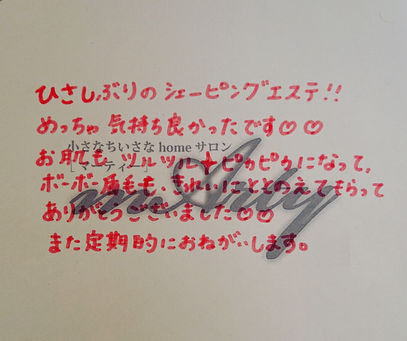 ひさしぶりの シェービングエステ!!
めっちゃ 気持ち良かったです♡♡
小さなちいさな home サロン
お肌も、ツルツル✦ピカピカになって、
[マーティー]
ボーボー眉毛も、きれいにととのえてもらって
ありがとうございました♡♡
また定期的におねがいします。